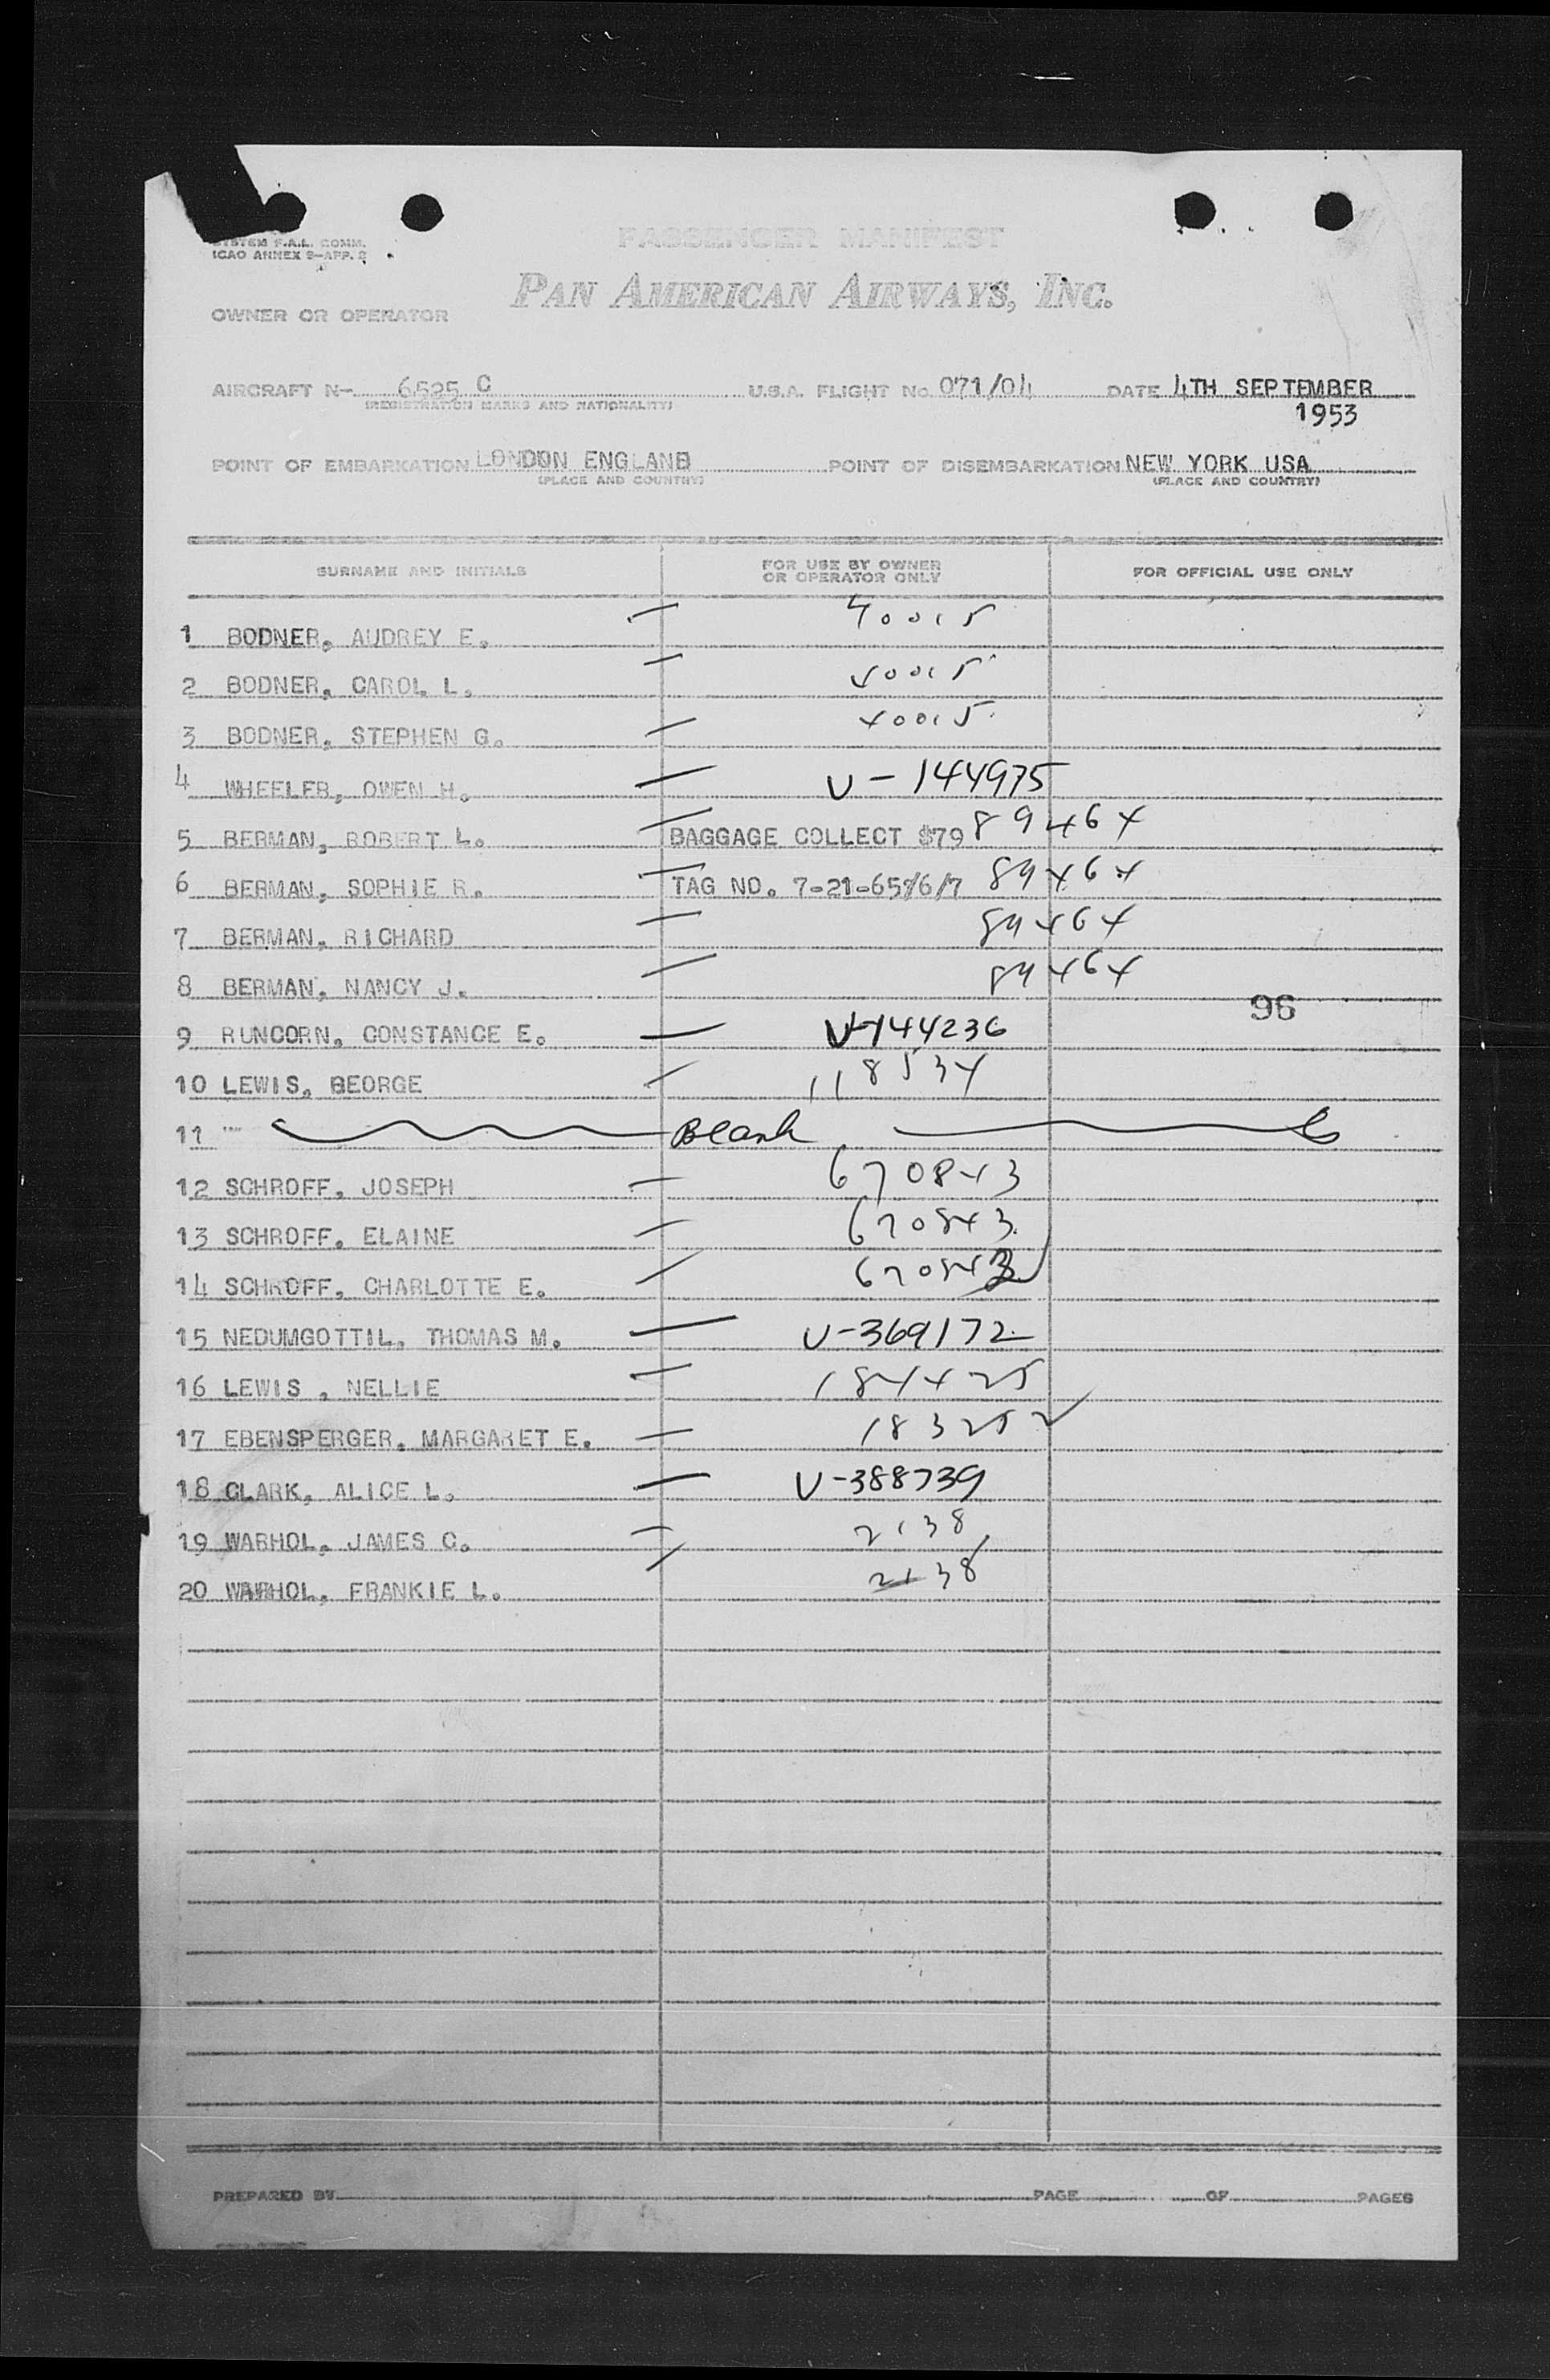 SYSTEM F.A.L. COMM.
ICAO ANNEX 9-APP. 2
PASSENGER MANIFEST
PAN AMERICAN AIRWAYS, INC.
OWNER OR OPERATOR
AIRCRAFT N- 6525 C U.S.A. FLIGHT NO. 071/04 DATE 4TH SEPTEMBER
(REGISTRATION MARKS AND NATIONALITY)
1953
POINT OF EMBARKATION LONDON ENGLAND POINT OF DISEMBARKATION NEW YORK USA
(PLACE AND COUNTRY) (PLACE AND COUNTRY)
SURNAME AND INITIALS FOR USE BY OWNER OR OPERATOR ONLY FOR OFFICIAL USE ONLY
1 BODNER, AUDREY E. — 40015
2 BODNER, CAROL L. — 40015
3 BODNER, STEPHEN G. — 40015
4 WHEELER, OWEN H. — V-144975
5 BERMAN, ROBERT L. — BAGGAGE COLLECT $79 89464
6 BERMAN, SOPHIE R. — TAG NO. 7-21-657/6/7 89464
7 BERMAN, RICHARD — 89464
8 BERMAN, NANCY J. — 89464
96
9 RUNCORN, CONSTANCE E. — V-144236
10 LEWIS, BEORGE — 118534
11 Blank
12 SCHROFF, JOSEPH — 670843
13 SCHROFF, ELAINE — 670843
14 SCHROFF, CHARLOTTE E. — 670843
15 NEDUMGOTTIL, THOMAS M. — V-369172
16 LEWIS , NELLIE — 184425
17 EBENSPERGER, MARGARET E. — 183252
18 CLARK, ALICE L. — V-388739
19 WARHOL, JAMES C. — 2138
20 WARHOL, FRANKIE L. — 2138
PREPARED BY PAGE OF PAGES